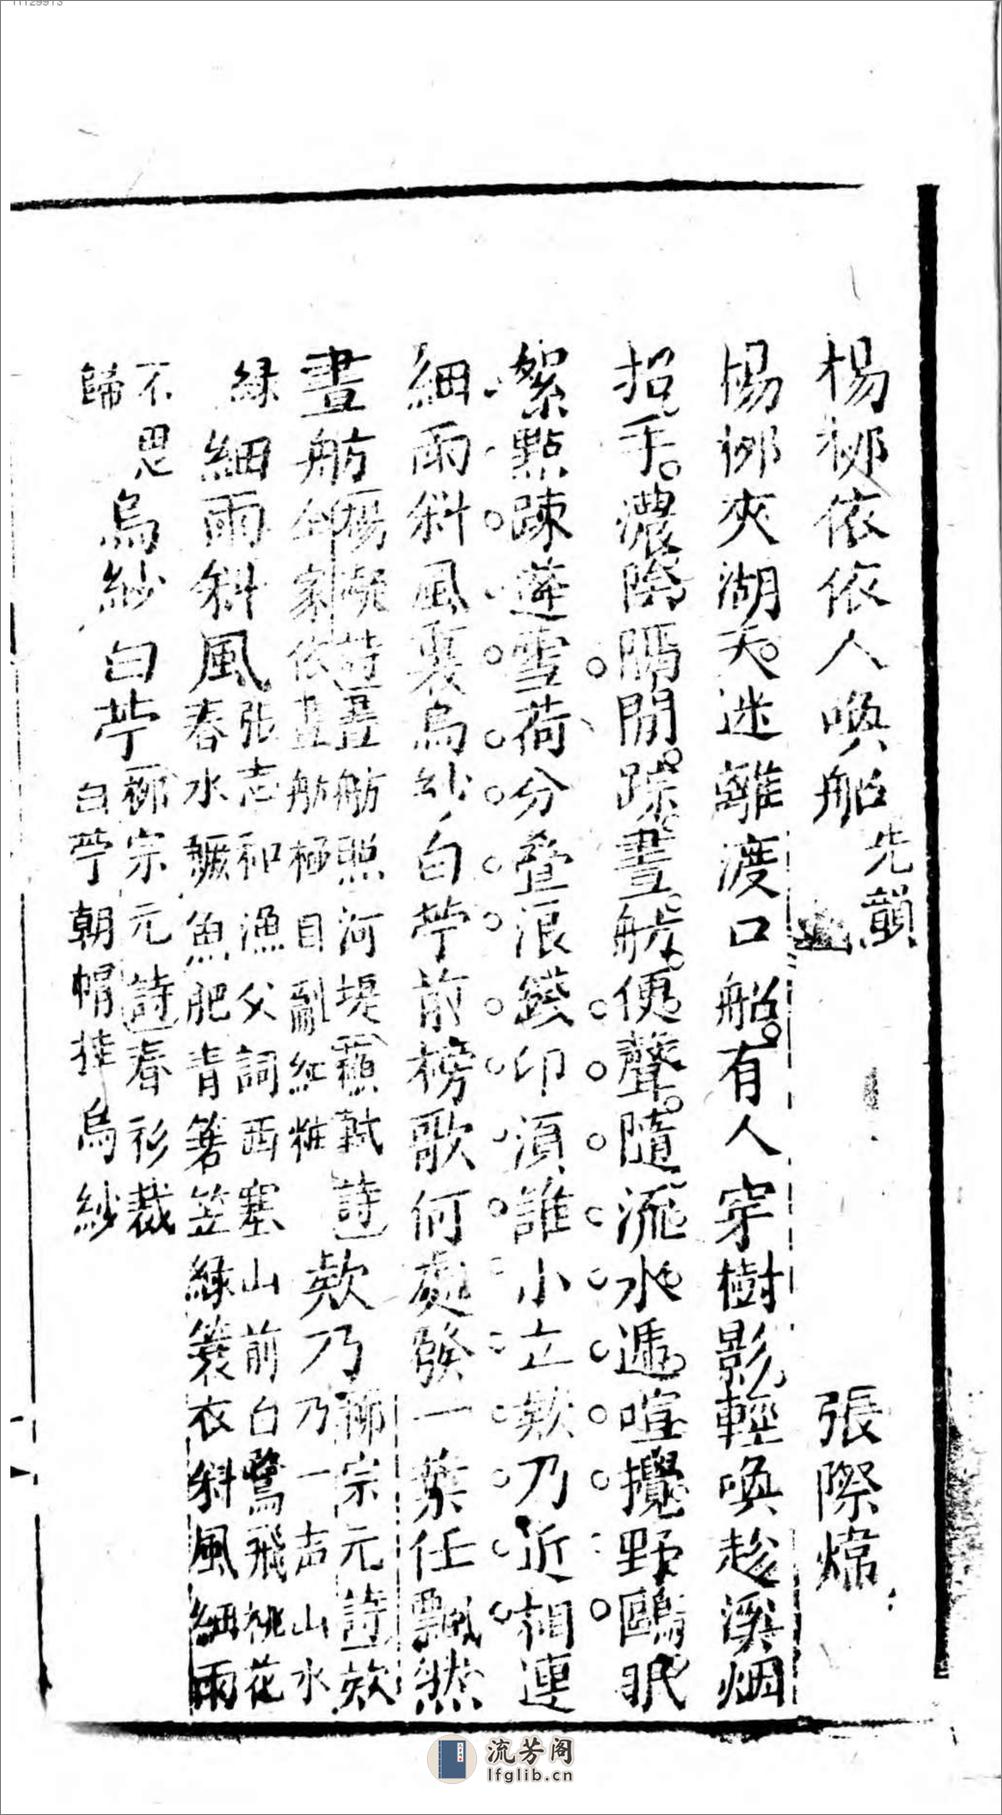 11129913
楊柳依依人喚船先韻 張際煒
楊柳夾湖天迷離渡口船有人穿樹影輕喚趁溪烟
招手濃陰隔開疎畫舫便聲隨流水遞喧攪野鷗眠
絮點疎蓬雪荷分叠浪錢印須誰小立欸乃近相連
細雨斜風裏烏紗白苧前榜歌何處發一葉任飄然
畫舫楊凝詩畫舫照河堤蘇軾詩
家依畫舫極目亂紅粧
欸乃柳宗元詩欸
乃一声山水
緑細雨斜風張志和漁父詞西塞山前白鷺飛桃花
春水鱖魚肥青箬笠緑簑衣斜風細雨
不思
歸烏紗白苧柳宗元詩春衫裁
白苧朝帽挂烏紗
流芳阁
lfglib.cn